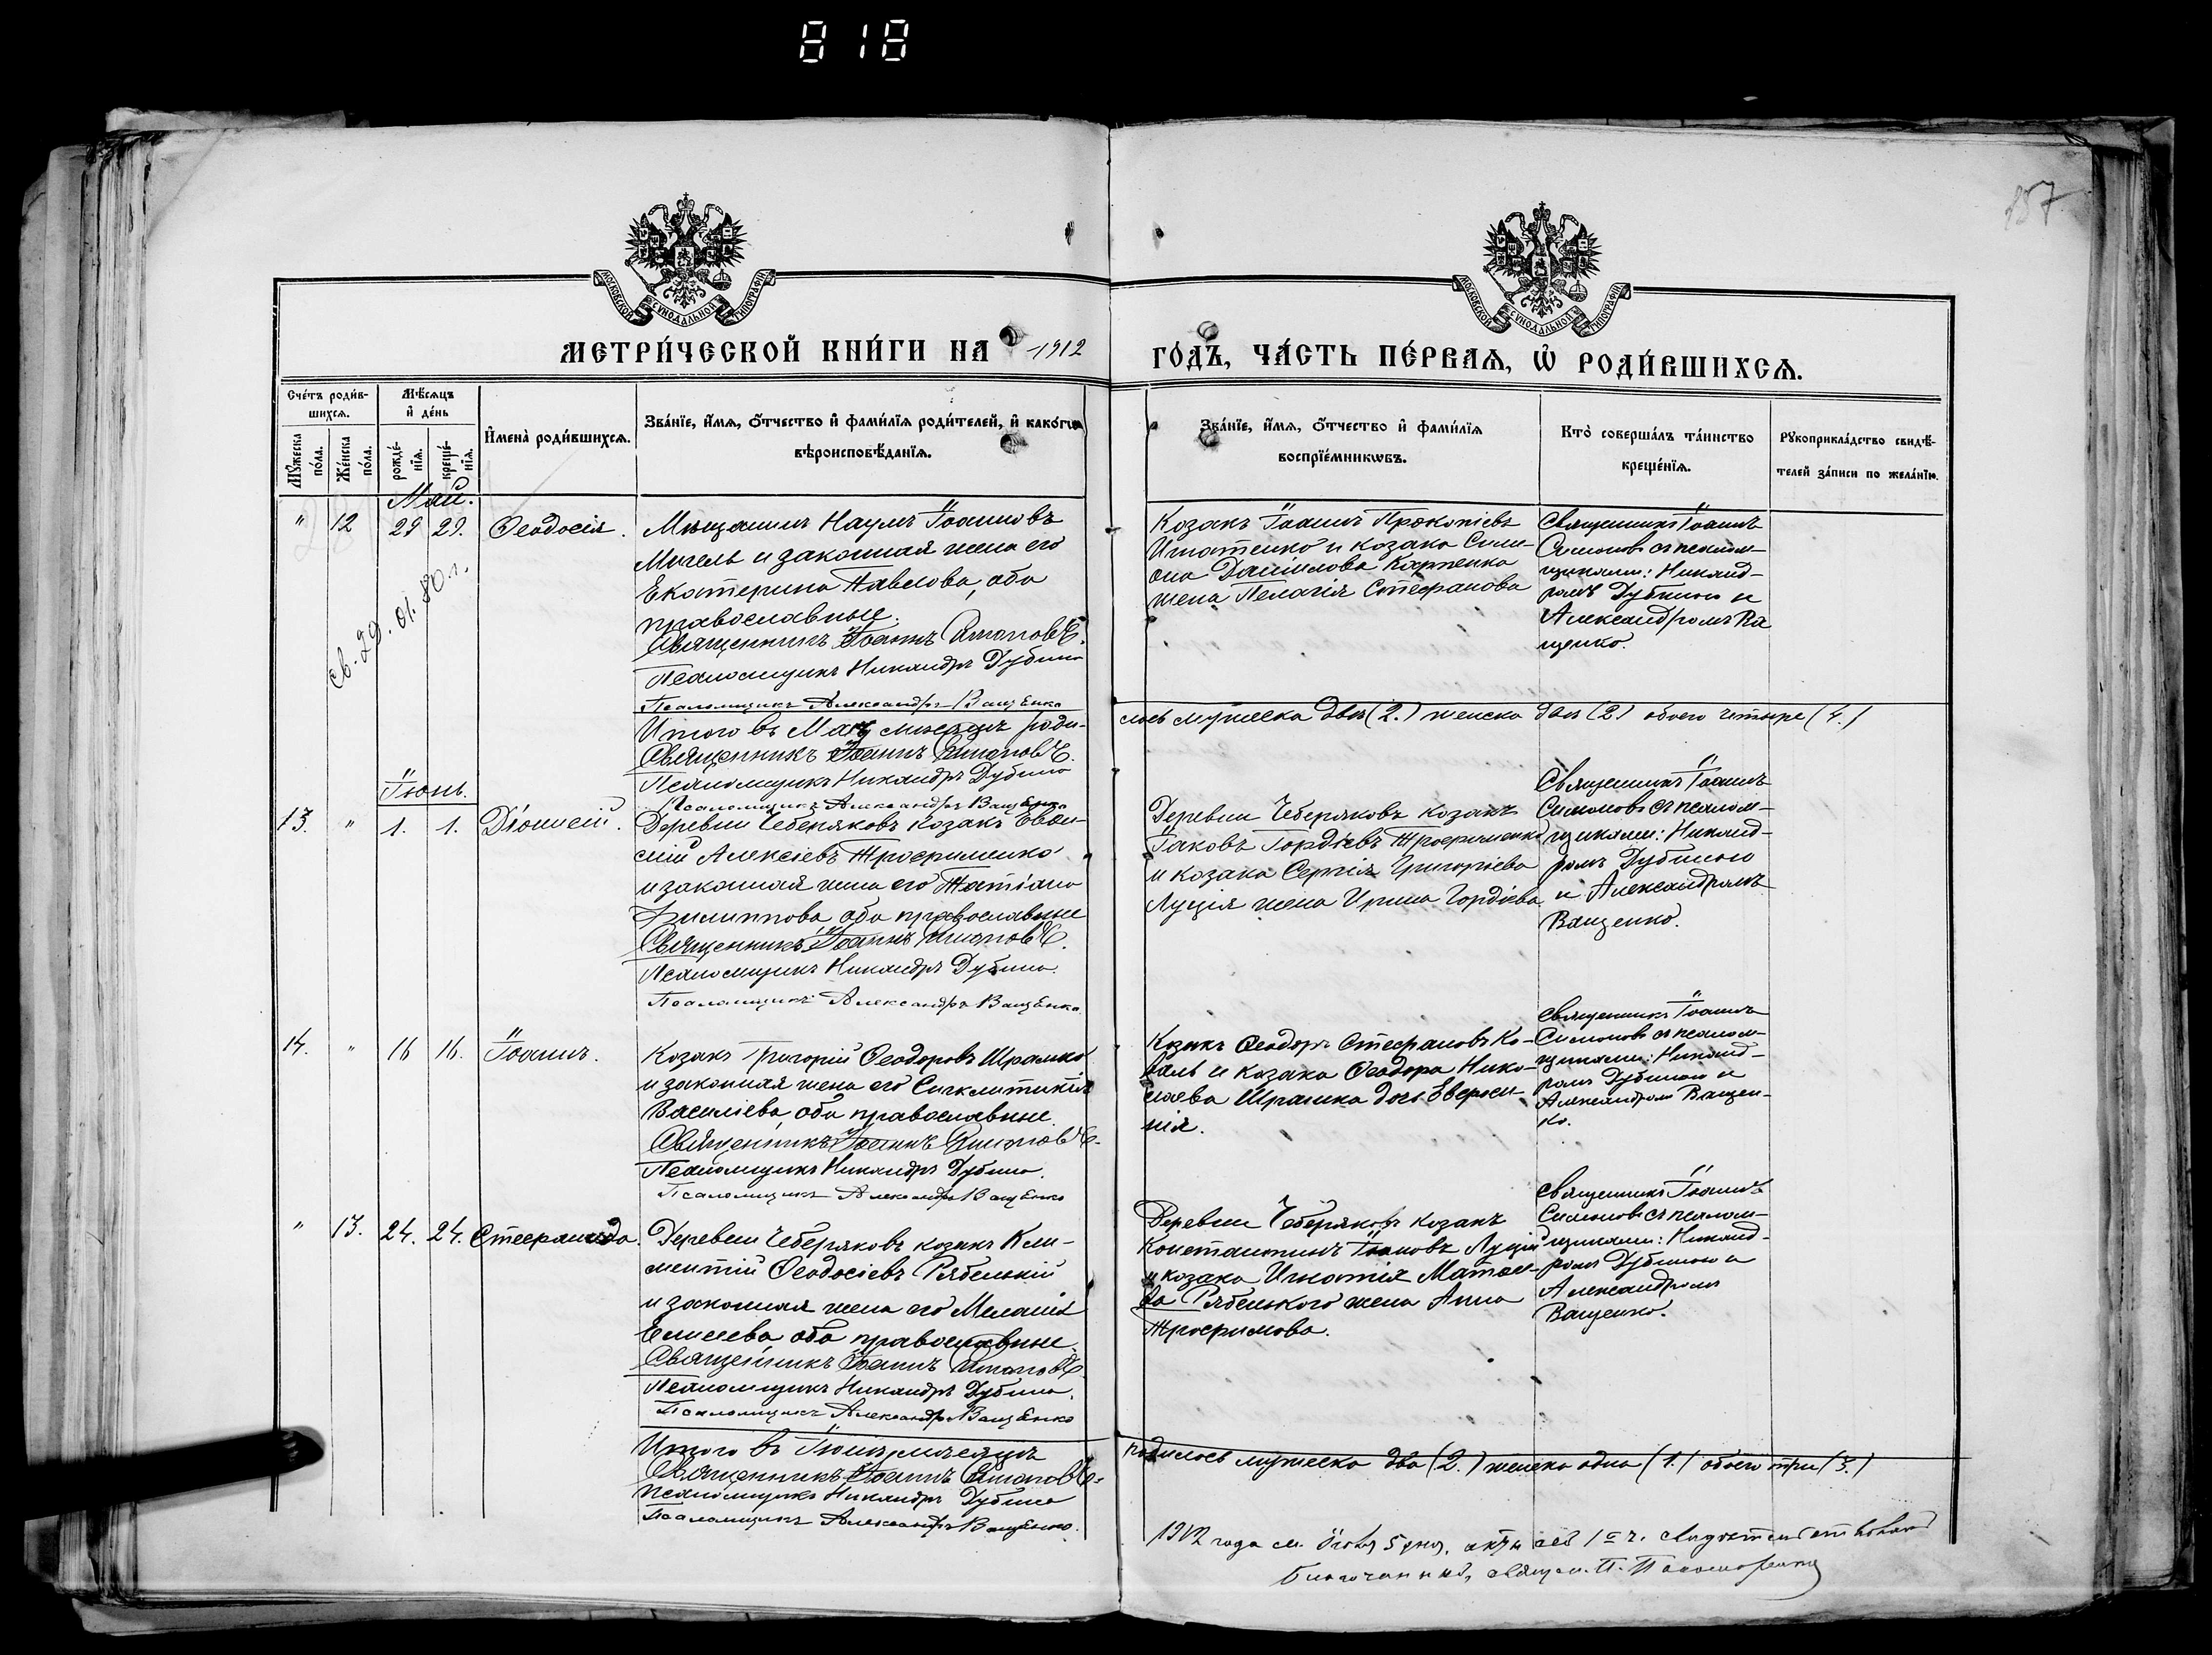 818
157
МОСКОВСКОЙ СѴНОДАЛЬНОЙ ТИПОГРАФІИ
МОСКОВСКОЙ СѴНОДАЛЬНОЙ ТИПОГРАФІИ
МЕТРИ́ЧЕСКОЙ КНИ́ГИ НА 1912
ГО́ДЪ, ЧА́СТЬ ПЕ́РВАЯ, Ѡ҆ РОДИ́ВШИХСЯ.
Сче́тъ роди́в-
шихся.
Мѣ́сяцъ
и҆ де́нь
Мꙋ́жеска
по́ла.
Же́нска
по́ла.
рожде́-
нїя.
креще́-
нїя.
И҆мена̀ роди́вшихся.
Зва́нїе, и҆́мя, ѻ҆́тчество и҆ фами́лїя роди́телей, и҆ како́гѡ
вѣроисповѣ́данїя.
Зва́нїе, и҆́мя, ѻ҆́тчество и҆ фами́лїя
воспрїе́мникѡвъ.
Кто̀ соверша́лъ та́инство
креще́нїя.
Рꙋкоприкла́дство свидѣ́-
телей за́писи по жела́нїю.
Май.
" 12 29 29. Ѳеодосія.
св. 29. 01. 80 г.
Мѣщанинъ Наумъ Іоанновъ
и законная жена его
Екатерина Павлова, оба
православные.
Священникъ Іоаннъ Симоновъ.
Псаломщикъ Никандръ Дубина
Псаломщикъ Александръ Ващенко
Козакъ Іоаннъ Прокопіевъ
Игнатенко и козака Сими-
она Даніилова Карпенка
жена Пелагія Стефанова
Священникъ Іоаннъ
Симоновъ съ псалом-
щиками: Никанд-
ромъ Дубиною и
Александромъ Ва
щенко.
Итого въ Маѣ мѣсяцѣ роди-
лось мужеска два (2.) женска два (2.) обоего четыре (4.)
Священникъ Іоаннъ Симоновъ.
Псаломщикъ Никандръ Дубина
Псаломщикъ Александръ Ващенко
Іюнь.
13. " 1. 1. Діонисій.
Деревни Чеберяковъ козакъ Евѳи-
мій Алексіевъ Трофименко
и законная жена его Татіана
Филиппова оба православные
Священникъ Іоаннъ Симоновъ.
Псаломщикъ Никандръ Дубина.
Псаломщикъ Александръ Ващенко.
Деревни Чеберяковъ козакъ
Іаковъ Гордіевъ Трофименко
и козака Сергія Григоріева
Луція жена Ирина Гордіева
Священникъ Іоаннъ
Симоновъ съ псалом-
щиками: Никанд-
ромъ Дубиною
и Александромъ
Ващенко.
14. " 16 16. Іоаннъ.
Козакъ Григорій Ѳеодоровъ Шрамко
и законная жена его Сигклитикія
Василіева, оба православные.
Священникъ Іоаннъ Симоновъ.
Псаломщикъ Никандръ Дубина.
Псаломщикъ Александръ Ващенко
Козакъ Ѳеодоръ Стефановъ Ко-
валь и козака Ѳеодора Нико-
лаева Шрамка дочь Евфроси-
нія.
Священникъ Іоаннъ
Симоновъ съ псалом-
щиками: Никанд-
ромъ Дубиною и
Александромъ Ващен-
ко.
" 13. 24. 24. Стефанида.
Деревни Чеберяковъ козакъ Кли-
ментій Ѳеодосіевъ Рябенькій
и законная жена его Меланія
Елисеева оба православные.
Священникъ Іоаннъ Симоновъ.
Псаломщикъ Никандръ Дубина.
Псаломщикъ Александръ Ващенко
Деревни Чеберяковъ козакъ
Константинъ Іоановъ Луцій
и козака Игнатія Матѳе-
ва Рябенького жена Анна
Трофимова.
Священникъ Іоаннъ
Симоновъ съ псалом-
щиками: Никанд-
ромъ Дубиною и
Александромъ
Ващенко.
Итого въ Іюнѣ мѣсяцѣ
родилось мужеска два (2.) женска одна (1.) обоего три (3.)
Священникъ Іоаннъ Симоновъ.
Псаломщикъ Никандръ Дубина
Псаломщикъ Александръ Ващенко.
1912 года м. 5 дня, 1й ч. свидѣтельствовалъ
Благочинный, священ. П.